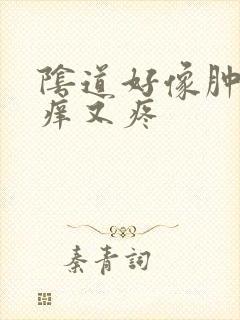 陰道好像肿
痒又疼
秦青詞